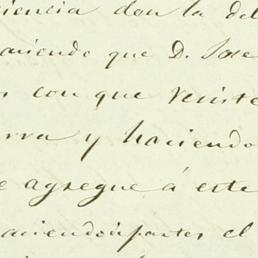 ciencia don la del
haciendo que D. Jose
con que reviste
rra y haciendo
e agregue á este
haciendo partes el